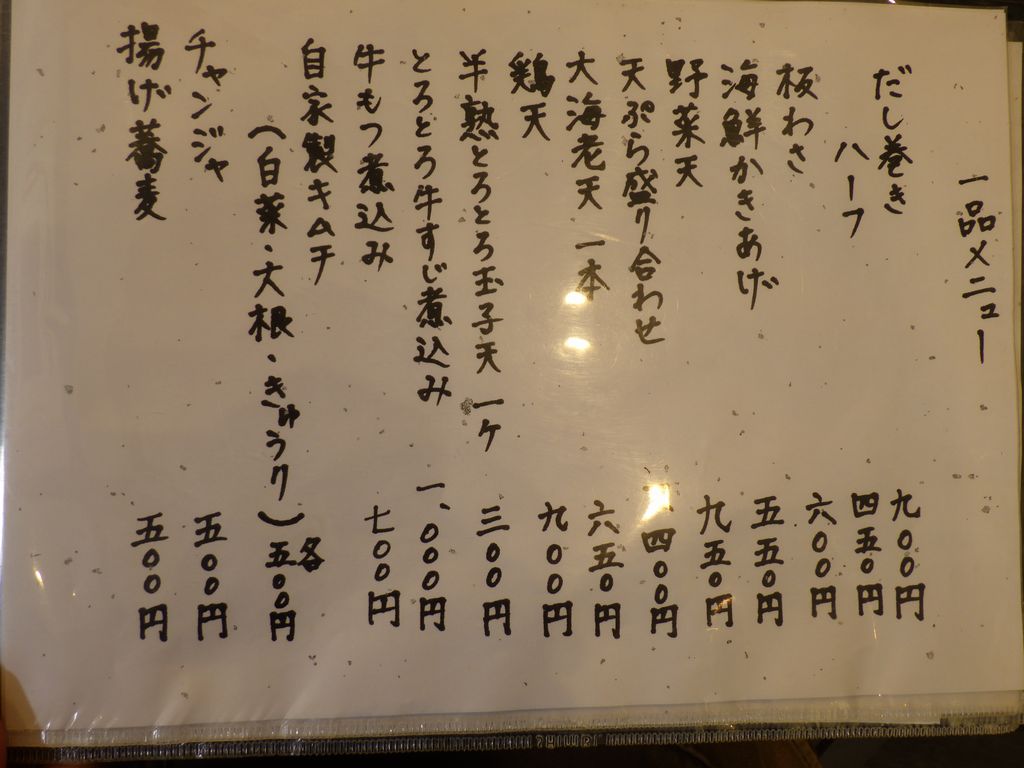 一品メニュー
だし巻き 九〇〇円
ハーフ 四五〇円
板わさ 六〇〇円
海鮮かきあげ 五五〇円
野菜天 九五〇円
天ぷら盛り合わせ 、四〇〇円
大海老天 一本 六五〇円
鶏天 九〇〇円
半熟とろとろ玉子天 一ケ 三〇〇円
とろとろ牛すじ煮込み 一、〇〇〇円
牛もつ煮込み 七〇〇円
自家製キムチ 各
(白菜・大根・きゅうり) 五〇〇円
チャンジャ 五〇〇円
揚げ蕎麦 五〇〇円